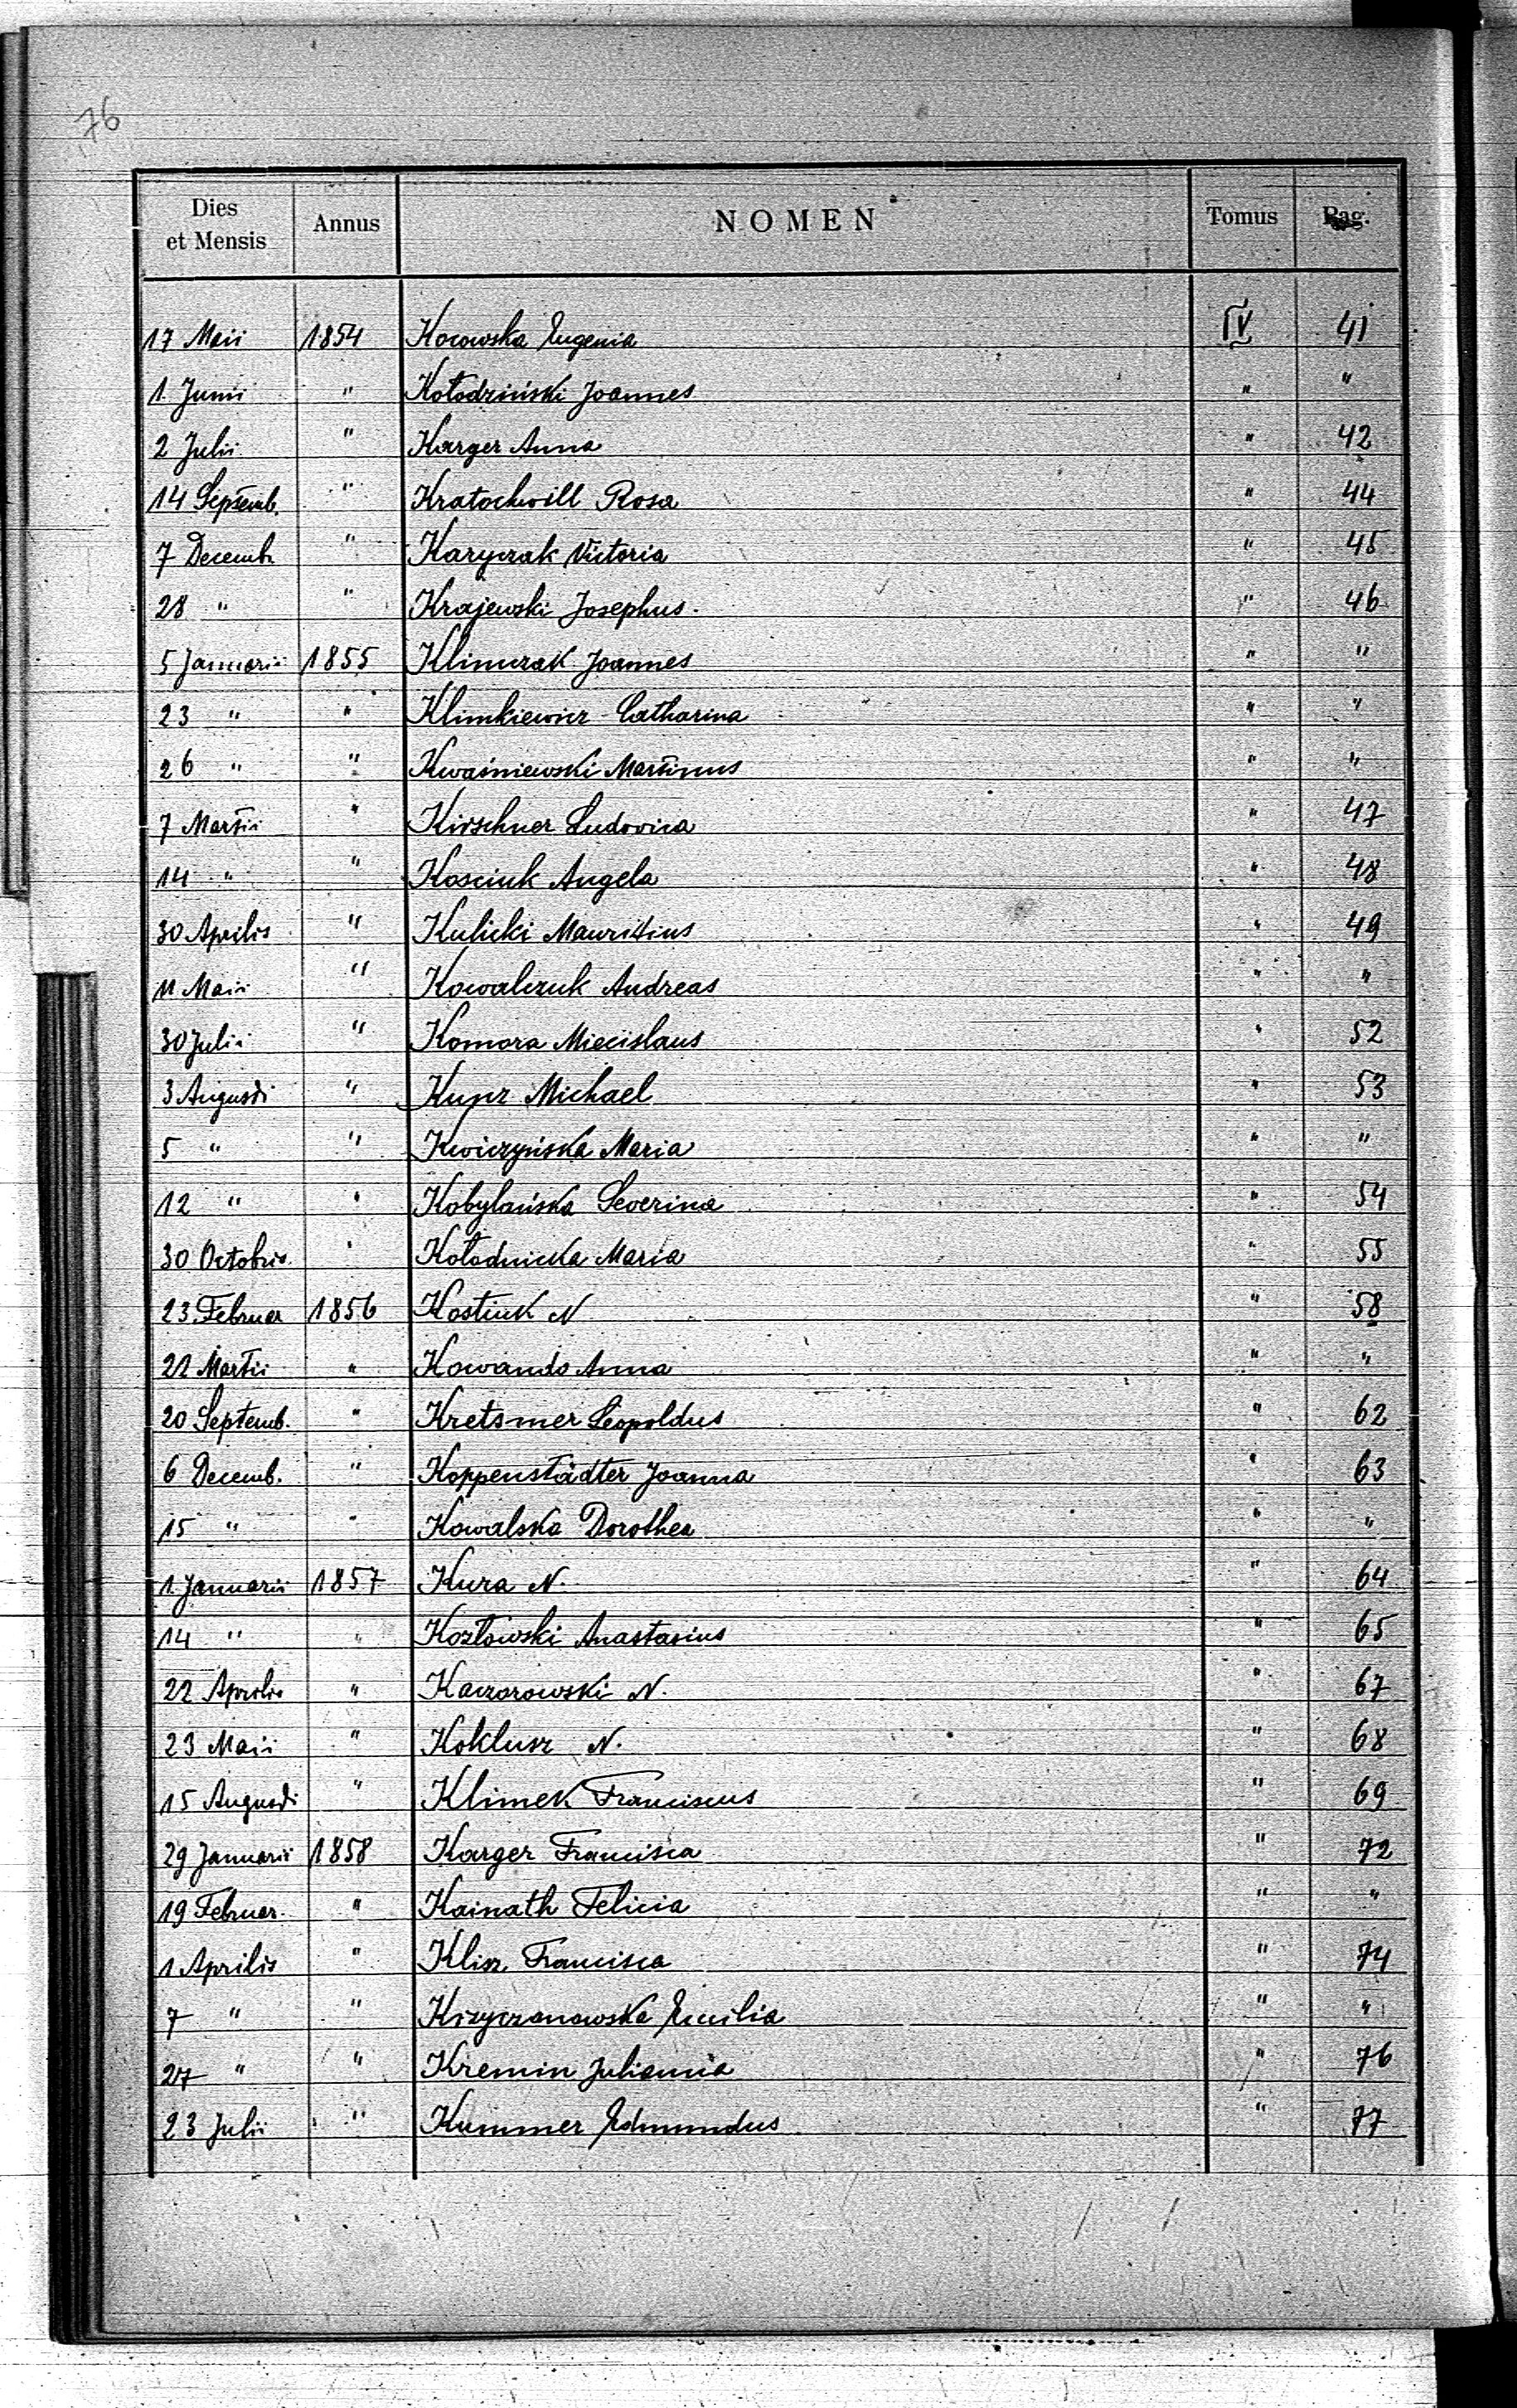 76
Dies et Mensis Annus NOMEN Tomus Pag.
17 Maii 1854 Kocowska Eugenia IV 41
1. Junii " Kołodziński Joannes " "
2 Julii " Karger Anna " 42
14 Septemb. " Kratochwill Rosa " 44
7 Decemb. " Karyczak Victoria " 45
28 " " Krajewski Josephus. " 46
5 Januarii 1855 Klimczak Joannes " "
23 " " Klimkiewicz Catharina " "
26 " " Kwaśniewski Martinus " "
7 Martii " Kirschner Ludovica " 47
14 " " Kosciuk Angela " 48
30 Aprilis " Kulicki Mauritius " 49
11 Maii " Kowalczuk Andreas " "
30 Julii " Komora Miecislaus " 52
3 Augusti " Kupz Michael " 53
5 " " Kwiczyńska Maria " "
12 " " Kobylańska Severina " 54
30 Octobris " Kołodnicka Maria " 55
23. Februar 1856 Kostiuk N " 58
21 Martii " Kowando Anna " "
20 Septemb. " Kretsmer Leopoldus " 62
6 Decemb. " Koppenstädter Joanna " 63
15 " " Kowalska Dorothea " "
1. Januarii 1857 Kura N. " 64
14 " " Kozłowski Anastasius " 65
22 Aprilis " Kaczorowski N. " 67
23 Maii " Koklusz N. " 68
15 Augusti " Klimek Franciscus " 69
29 Januarii 1858 Karger Francisca " 72
19 Februar. " Kainath Felicia " "
1 Aprilis " Klisz Francisca " 74
7 " " Krzyczanowska Emilia " "
27 " " Kremin Julianna " 76
23 Julii " Kummer Edmundus " 77